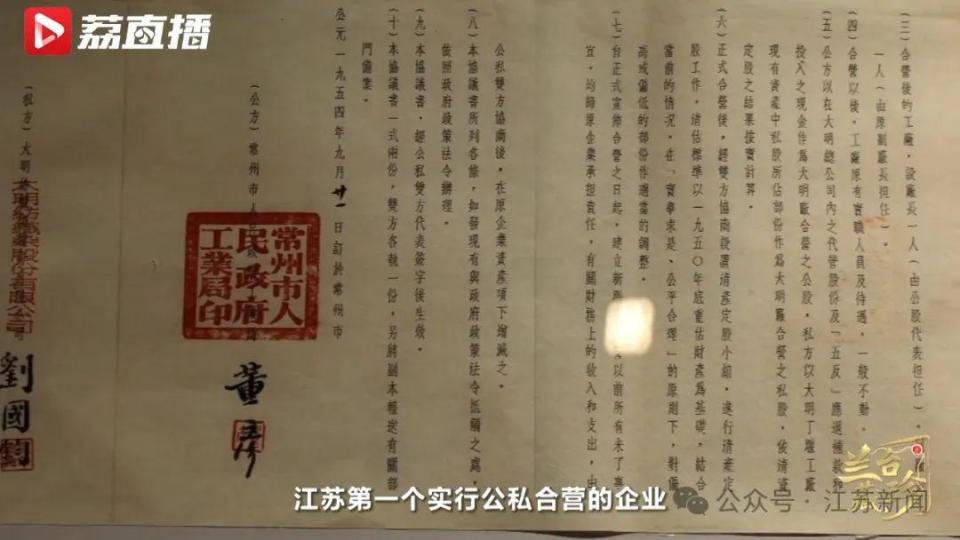 荔直播
(三)合營後的工廠,設廠長一人(由公股代表担任),
一人(由原副廠長担任)。
(四)合營以後,工廠原有實職人員及待遇,一般不動。
(五)公方以在大明總公司內之代管股份及「五反」應退補款和
投入之現金作爲大明廠合營之公股,私方以大明了堰工廠
現有資產中私股所佔部份作爲大明廠合營之私股,依清資
定股之結果按實計算。
(六)正式合營後,經雙方協商設清產定股小組,進行清產定
股工作,清估標準以一九五〇年底重估財產爲基礎,結合
當前的情况,在「實事求是、公平合理」的原則下,對偏
高或偏低的部份作適當的調整。
(七)自正式宣佈合營之日起,建立新 以前所有未了事
宜,均歸原企業承担責任,有關財務上的收入和支出,由
公私雙方協商後,在原企業資產項下增減之。
(八)本協議書所列各條,如發現有與政府政策法令抵觸之處,
依照政府政策法令辦理。
(九)本協議書,經公私雙方代表簽字後生效。
(十)本協議書一式兩份,雙方各執一份,另將副本報送有關部
門備案。
公元一九五四年九月廿一日訂於常州市
(公方)常州市人民政府
常州市人民政府工業局印
董
(私方)大明
大明紡織染股份有限公司
劉國鈞
江苏第一个实行公私合营的企业
公众号·江苏新闻
兰台